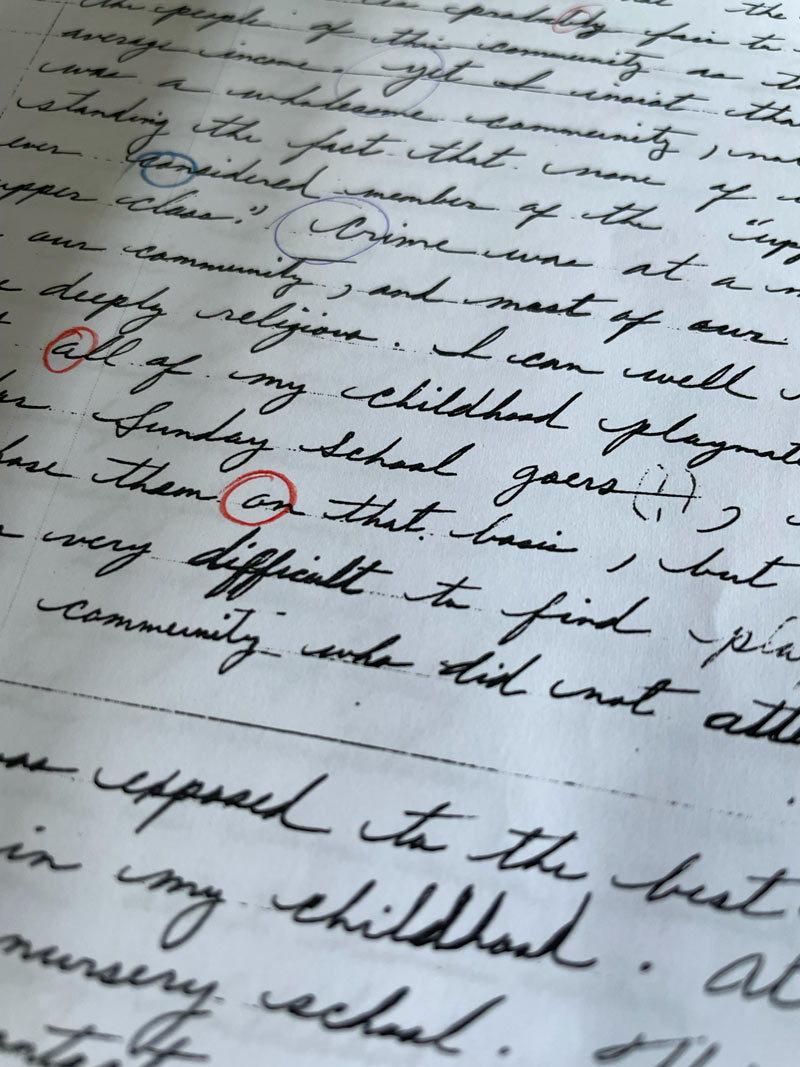 the
the people of this community as
probably fair to
average income. yet I insist
was a wholesome community,
standing the fact that none of
ever considered member of the "upp
upper class." Crime was at a
our community, and most of our
deeply religious. I can well
all of my childhood playmat
Sunday School goers (1),
them on that basis, but
very difficult to find pla
community who did not atte
exposed to the best
in my childhood. At
nursery school.